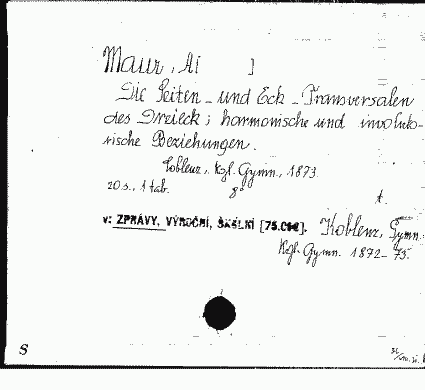 Maur, Al[ ]
Die Seiten - und Eck - Transversalen
des Dreieck; harmonische und involuto-
rische Beziehungen.
Coblenz, Kgl. Gymn., 1873.
20 s., 1 tab. 8°
t.
v: ZPRÁVY, VÝROČNÍ, ŠKOLNÍ Koblenz, Gymn.
Kgl. Gymn. 1872-73.
S